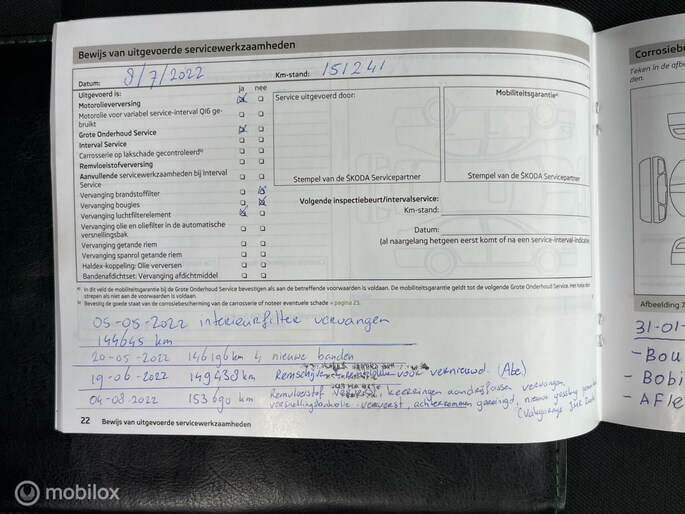 Bewijs van uitgevoerde servicewerkzaamheden
Datum: 8/7/2022 Km-stand: 151241
Uitgevoerd is: ja nee
Motorolieverversing
Motorolie voor variabel service-interval QI6 ge-
bruikt
Grote Onderhoud Service
Interval Service
Carrosserie op lakschade gecontroleerd
Remvloeistofverversing
Aanvullende servicewerkzaamheden bij Interval
Service
Vervanging brandstoffilter
Vervanging bougies
Vervanging luchtfilterelement
Vervanging olie en oliefilter in de automatische
versnellingsbak
Vervanging getande riem
Vervanging spanrol getande riem
Haldex-koppeling: Olie verversen
Bandenafdichtset: Vervanging afdichtmiddel
Service uitgevoerd door:
Stempel van de ŠKODA Servicepartner
Mobiliteitsgarantie
Stempel van de ŠKODA Servicepartner
Volgende inspectiebeurt/intervalservice:
Km-stand:
Datum:
(al naargelang hetgeen eerst komt of na een service-interval-indicatie)
a) In dit veld de mobiliteitsgarantie bij de Grote Onderhoud Service bevestigen als aan de betreffende voorwaarden is voldaan. De mobiliteitsgarantie geldt tot de volgende Grote Onderhoud Service. Het hokje
strepen als niet aan de voorwaarden is voldaan.
b) Bevestig de goede staat van de corrosiebescherming van de carrosserie of noteer eventuele schade » pagina 23.
05-05-2022 interieurfilter vervangen
144645 km
20-05-2022 146196 km 4 nieuwe banden
19-06-2022 149438 km Remschijven voor vernieuwd. (Abe)
04-08-2022 153690 km Remvloeistof ververst, keerringen aandrijfassen vervangen,
versnellingsbakolie ververst, achterremmen gereinigd, nieuwe
22 Bewijs van uitgevoerde servicewerkzaamheden
Corrosiebe
Teken in de afbe
den.
Afbeelding 7
31-01-
- Bou
- Bobi
- AFle
mobilox